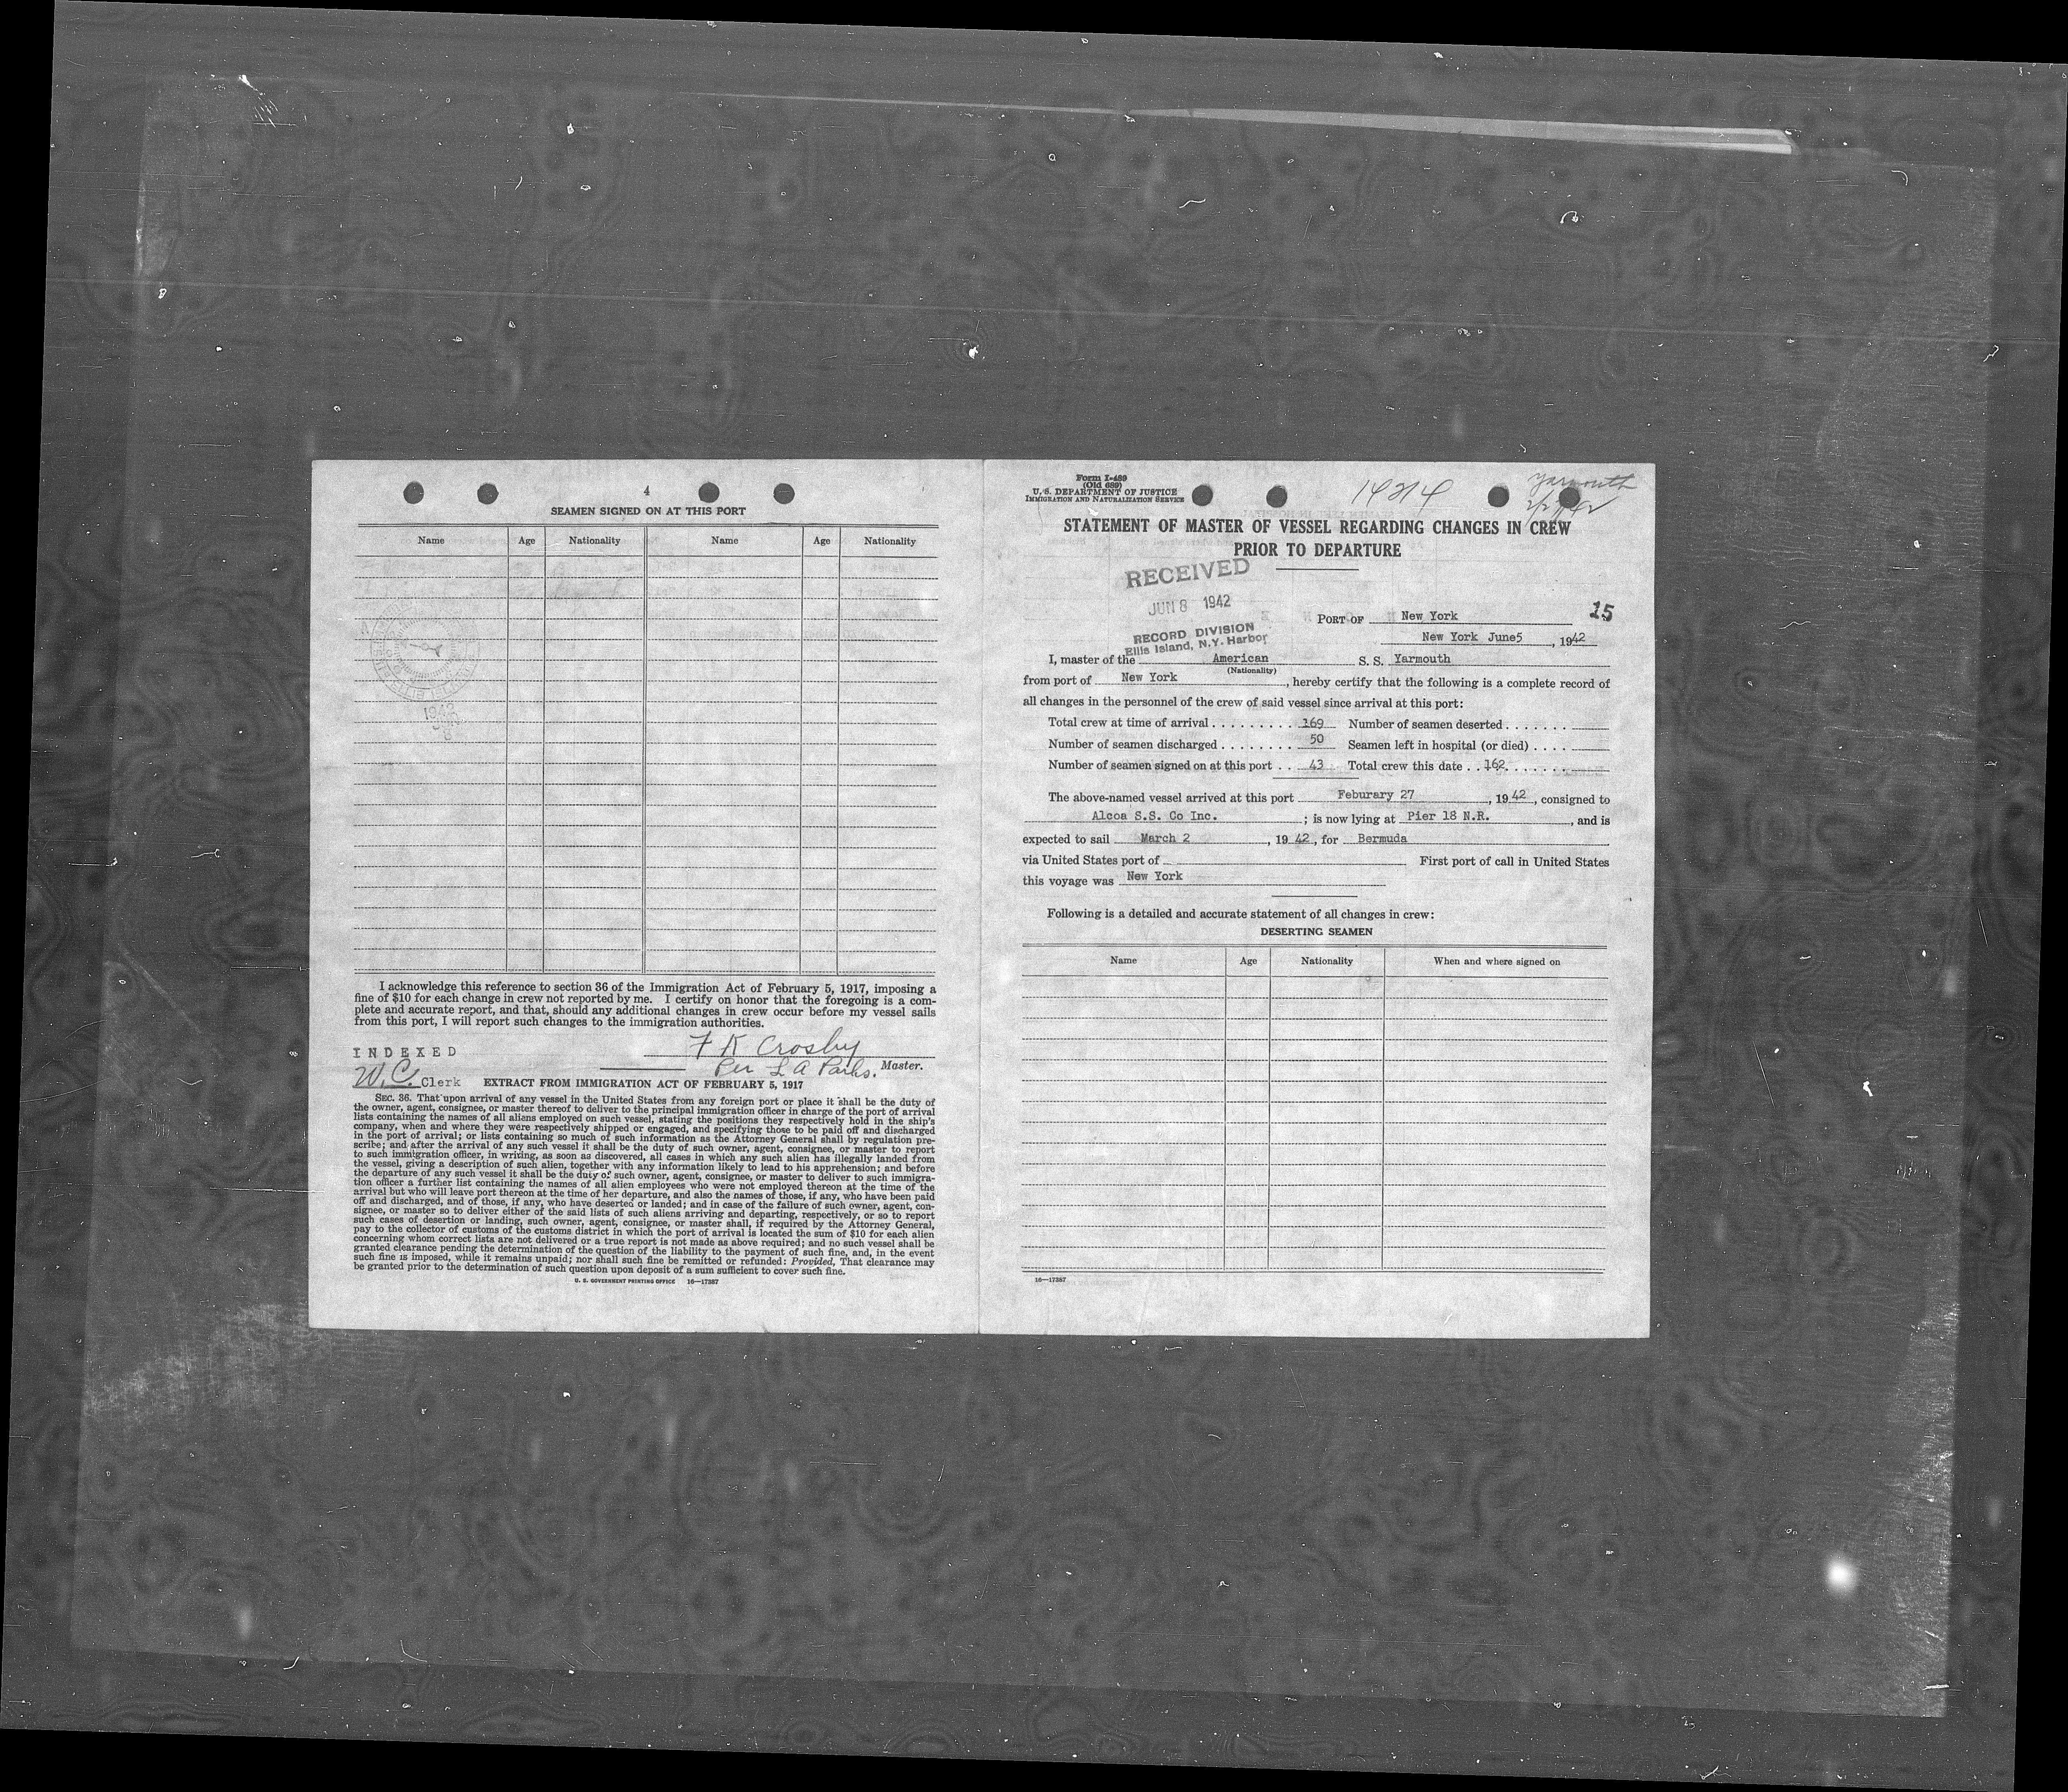 4
SEAMEN SIGNED ON AT THIS PORT
Name Age Nationality Name Age Nationality
1942
I acknowledge this reference to section 36 of the Immigration Act of February 5, 1917, imposing a
fine of $10 for each change in crew not reported by me. I certify on honor that the foregoing is a com-
plete and accurate report, and that, should any additional changes in crew occur before my vessel sails
from this port, I will report such changes to the immigration authorities.
INDEXED
F K Crosby
Per L A Parks. Master.
W.C. Clerk EXTRACT FROM IMMIGRATION ACT OF FEBRUARY 5, 1917
SEC. 36. That upon arrival of any vessel in the United States from any foreign port or place it shall be the duty of
the owner, agent, consignee, or master thereof to deliver to the principal immigration officer in charge of the port of arrival
lists containing the names of all aliens employed on such vessel, stating the positions they respectively hold in the ship's
company, when and where they were respectively shipped or engaged, and specifying those to be paid off and discharged
in the port of arrival; or lists containing so much of such information as the Attorney General shall by regulation pre-
scribe; and after the arrival of any such vessel it shall be the duty of such owner, agent, consignee, or master to report
to such immigration officer, in writing, as soon as discovered, all cases in which any such alien has illegally landed from
the vessel, giving a description of such alien, together with any information likely to lead to his apprehension; and before
the departure of any such vessel it shall be the duty of such owner, agent, consignee, or master to deliver to such immigra-
tion officer a further list containing the names of all alien employees who were not employed thereon at the time of the
arrival but who will leave port thereon at the time of her departure, and also the names of those, if any, who have been paid
off and discharged, and of those, if any, who have deserted or landed; and in case of the failure of such owner, agent, con-
signee, or master so to deliver either of the said lists of such aliens arriving and departing, respectively, or so to report
such cases of desertion or landing, such owner, agent, consignee, or master shall, if required by the Attorney General,
pay to the collector of customs of the customs district in which the port of arrival is located the sum of $10 for each alien
concerning whom correct lists are not delivered or a true report is not made as above required; and no such vessel shall be
granted clearance pending the determination of the question of the liability to the payment of such fine, and, in the event
such fine is imposed, while it remains unpaid; nor shall such fine be remitted or refunded: Provided, That clearance may
be granted prior to the determination of such question upon deposit of a sum sufficient to cover such fine.
U. S. GOVERNMENT PRINTING OFFICE 16—17387
Form I-489
(Old 689)
U. S. DEPARTMENT OF JUSTICE
IMMIGRATION AND NATURALIZATION SERVICE
14214
Yarmouth
2/27/42
STATEMENT OF MASTER OF VESSEL REGARDING CHANGES IN CREW
PRIOR TO DEPARTURE
RECEIVED
JUN 8 1942
RECORD DIVISION
Ellis Island, N.Y. Harbor
PORT OF New York
15
New York June5, 1942
I, master of the American S. S. Yarmouth
(Nationality)
from port of New York, hereby certify that the following is a complete record of
all changes in the personnel of the crew of said vessel since arrival at this port:
Total crew at time of arrival . . . . . . . . . 169 Number of seamen deserted . . . . . . .
Number of seamen discharged . . . . . . . . 50 Seamen left in hospital (or died) . . . .
Number of seamen signed on at this port . . 43 Total crew this date . . 162. . . . . . .
The above-named vessel arrived at this port Feburary 27, 1942, consigned to
Alcoa S.S. Co Inc. ; is now lying at Pier 18 N.R., and is
expected to sail March 2, 1942, for Bermuda
via United States port of First port of call in United States
this voyage was New York
Following is a detailed and accurate statement of all changes in crew:
DESERTING SEAMEN
Name Age Nationality When and where signed on
16—17387